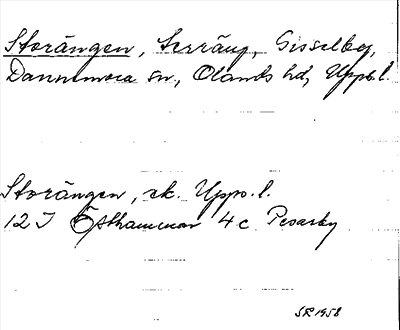 Storängen, terräng, Gisselby,
Dannemora sn., Olands hd, Upps. l.
Storängen, ek. Upps. l.
12 I Östhammar 4 c Persby
SR 1958